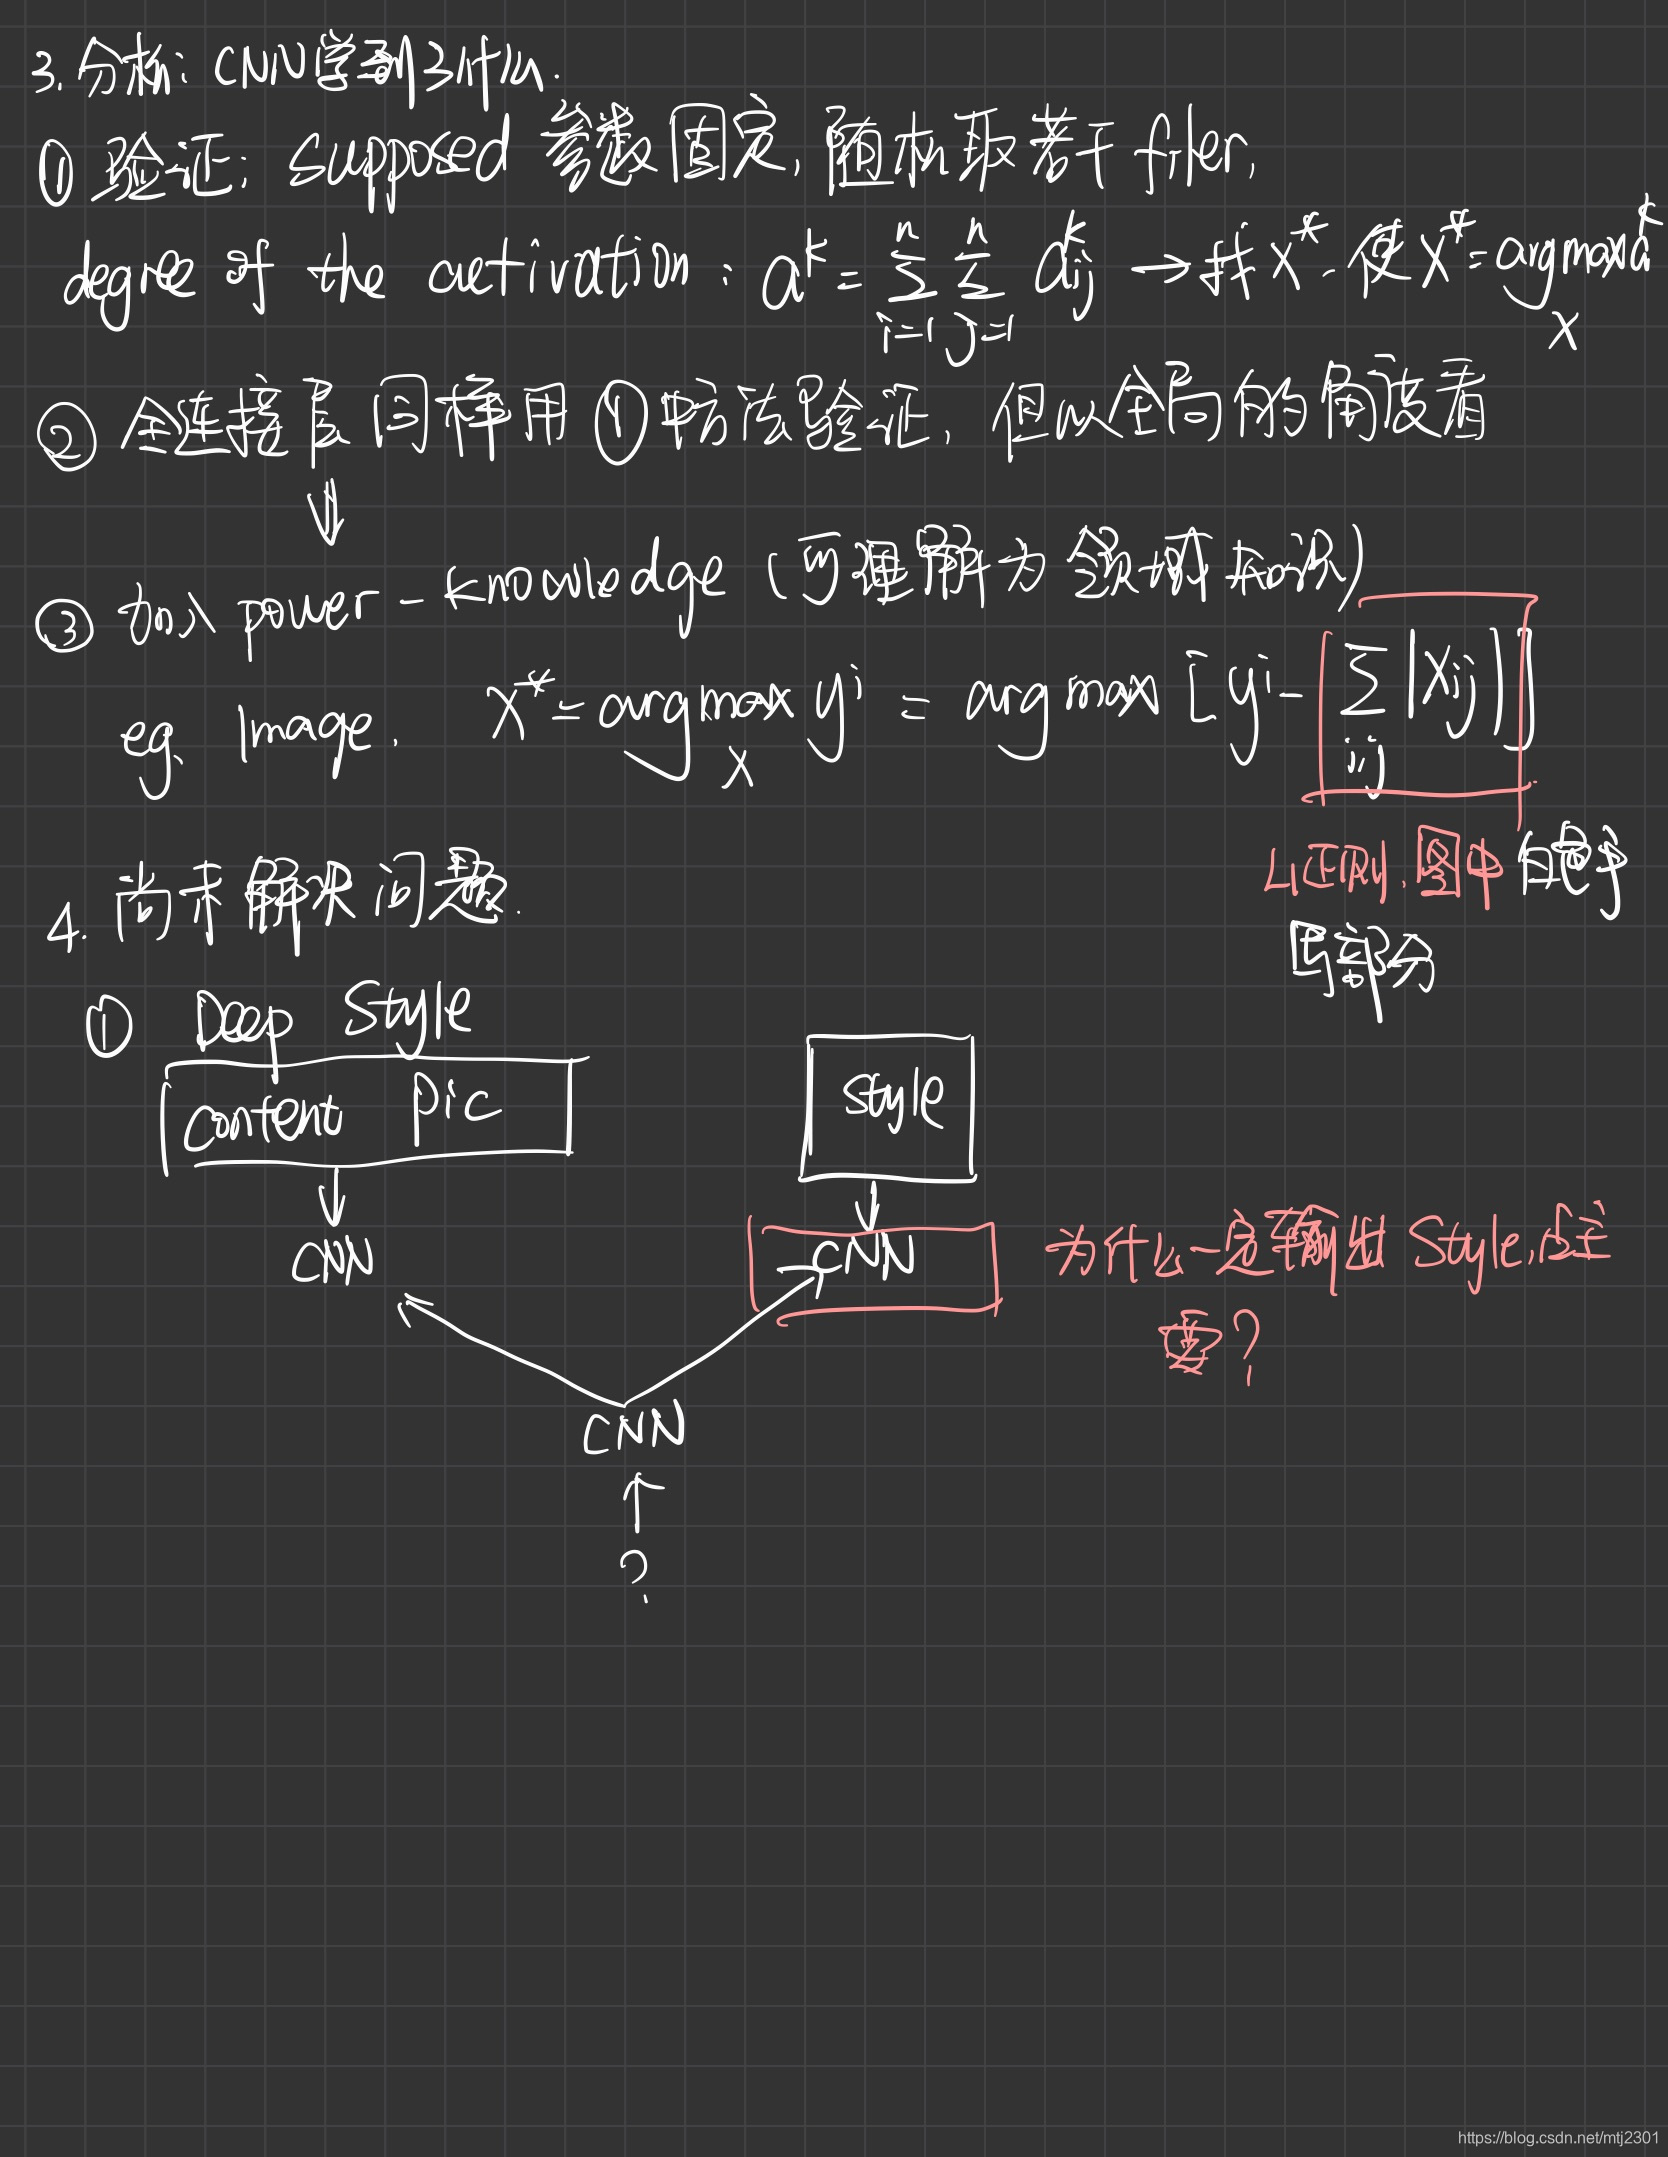 3. 分析: CNN学到了什么.
① 验证: supposed 参数固定, 随机取若干 filer,
degree of the activation : a^k = Σ_{i=1}^{n} Σ_{j=1}^{n} a_{ij}^k → 找 X*, 使 X* = arg max_X a^k
② 全连接层同样用①中方法验证, 但以全局的角度看
↓
③ 加入 power-knowledge (可理解为领域知识)
eg. Image. X* = arg max_X y^i = arg max [y^i - Σ_{i,j} |X_{ij}|]
L1正则, 图中白色手
写部分
4. 尚未解决问题.
① Deep Style
content Pic
style
↓ ↓
CNN CNN
为什么一定输出 Style, 占主
要?
CNN
↑
?
https://blog.csdn.net/mtj2301